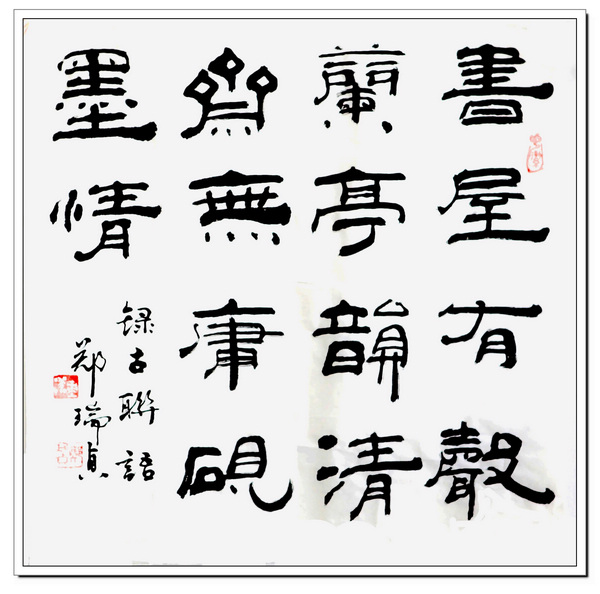 書屋有聲
蘭亭韻清
齋無庸硯
墨情
録古聯語
郑瑞貞